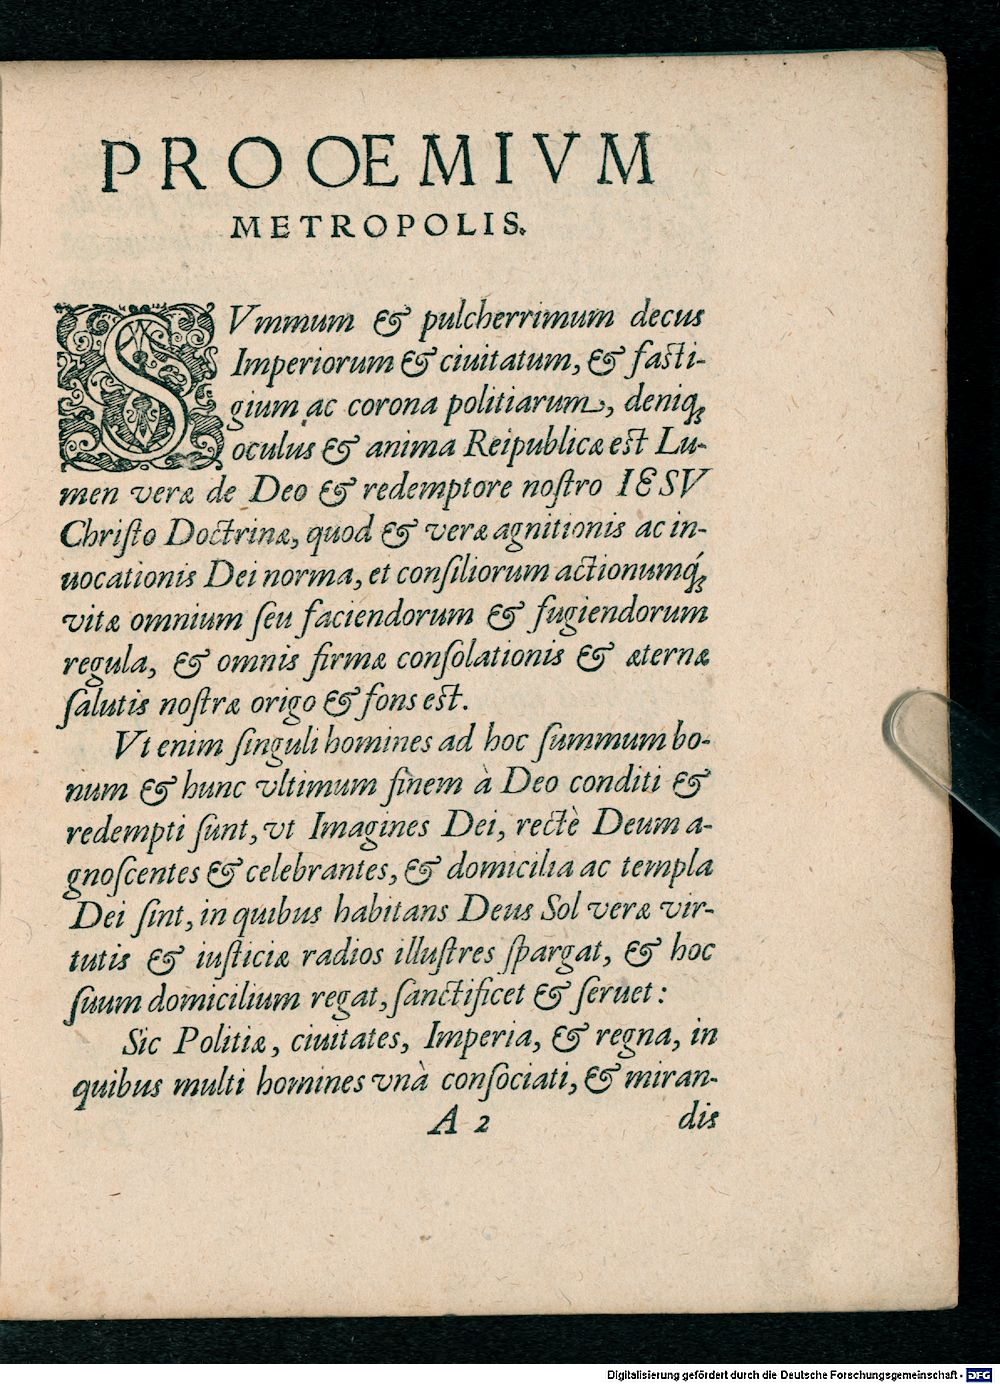 PROOEMIVM
METROPOLIS.
SVmmum & pulcherrimum decus
Imperiorum & ciuitatum, & fasti-
gium ac corona politiarum, deniq;
oculus & anima Reipublicæ est Lu-
men veræ de Deo & redemptore nostro IESV
Christo Doctrinæ, quod & veræ agnitionis ac in-
uocationis Dei norma, et consiliorum actionumq́;
vitæ omnium seu faciendorum & fugiendorum
regula, & omnis firmæ consolationis & æternæ
salutis nostræ origo & fons est.
Vt enim singuli homines ad hoc summum bo-
num & hunc vltimum finem à Deo conditi &
redempti sunt, vt Imagines Dei, rectè Deum a-
gnoscentes & celebrantes, & domicilia ac templa
Dei sint, in quibus habitans Deus Sol veræ vir-
tutis & iusticiæ radios illustres spargat, & hoc
suum domicilium regat, sanctificet & seruet:
Sic Politiæ, ciuitates, Imperia, & regna, in
quibus multi homines vnà consociati, & miran-
A 2 dis
Digitalisierung gefördert durch die Deutsche Forschungsgemeinschaft - DFG